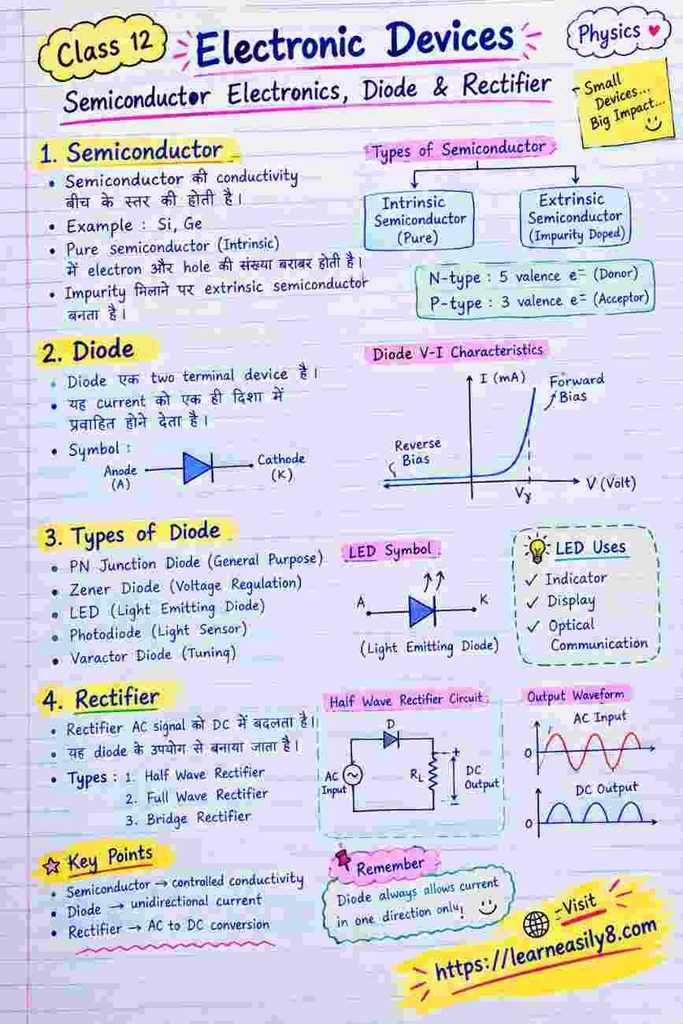 Class 12
Electronic Devices
Physics ♥
Semiconductor Electronics, Diode & Rectifier
Small
Devices...
Big Impact...
1. Semiconductor
• Semiconductor की conductivity
बीच के स्तर की होती है।
• Example : Si, Ge
• Pure semiconductor (Intrinsic)
में electron और hole की संख्या बराबर होती है।
• Impurity मिलाने पर extrinsic semiconductor
बनता है।
Types of Semiconductor
Intrinsic
Semiconductor
(Pure)
Extrinsic
Semiconductor
(Impurity Doped)
N-type : 5 valence e= (Donor)
P-type : 3 valence e= (Acceptor)
2. Diode
• Diode एक two terminal device है।
• यह current को एक ही दिशा में
प्रवाहित होने देता है।
• Symbol :
Anode
(A)
Cathode
(K)
Diode V-I Characteristics
I (mA)
Forward
Bias
Reverse
Bias
Vγ
V (Volt)
3. Types of Diode
• PN Junction Diode (General Purpose)
• Zener Diode (Voltage Regulation)
• LED (Light Emitting Diode)
• Photodiode (Light Sensor)
• Varactor Diode (Tuning)
LED Symbol
A
K
(Light Emitting Diode)
LED Uses
✓ Indicator
✓ Display
✓ Optical
Communication
4. Rectifier
• Rectifier AC signal को DC में बदलता है।
• यह diode के उपयोग से बनाया जाता है।
• Types : 1. Half Wave Rectifier
2. Full Wave Rectifier
3. Bridge Rectifier
Half Wave Rectifier Circuit
D
AC
Input
RL
+
DC
Output
-
Output Waveform
AC Input
0
DC Output
0
Key Points
• Semiconductor → controlled conductivity
• Diode → unidirectional current
• Rectifier → AC to DC conversion
Remember
Diode always allows current
in one direction only!
Visit
https://learneasily8.com